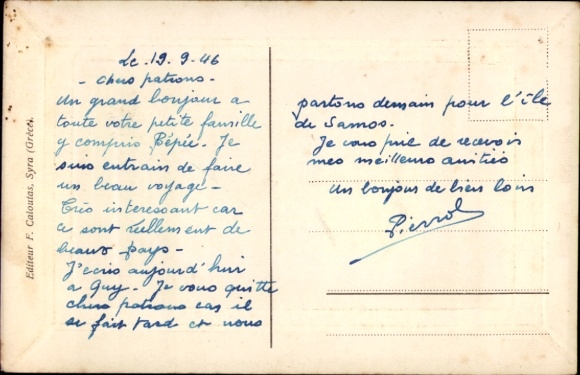 Le - 19 - 9 - 46
- Chers patrons -
Un grand bonjour a
toute votre petite famille
y compris Pépée. Je
suis entrain de faire
un beau voyage -
Très interessant car
ce sont réellement de
beaux pays -
J'écris aujourd'hui
a Guy. Je vous quitte
chers patrons car il
se fait tard et nous
partons demain pour l'île
de Samos.
Je vous prie de recevoir
mes meilleurs amitiés
Un bonjour de bien loin
Pierrot
Editeur F. Caloutas, Syra (Grèce)